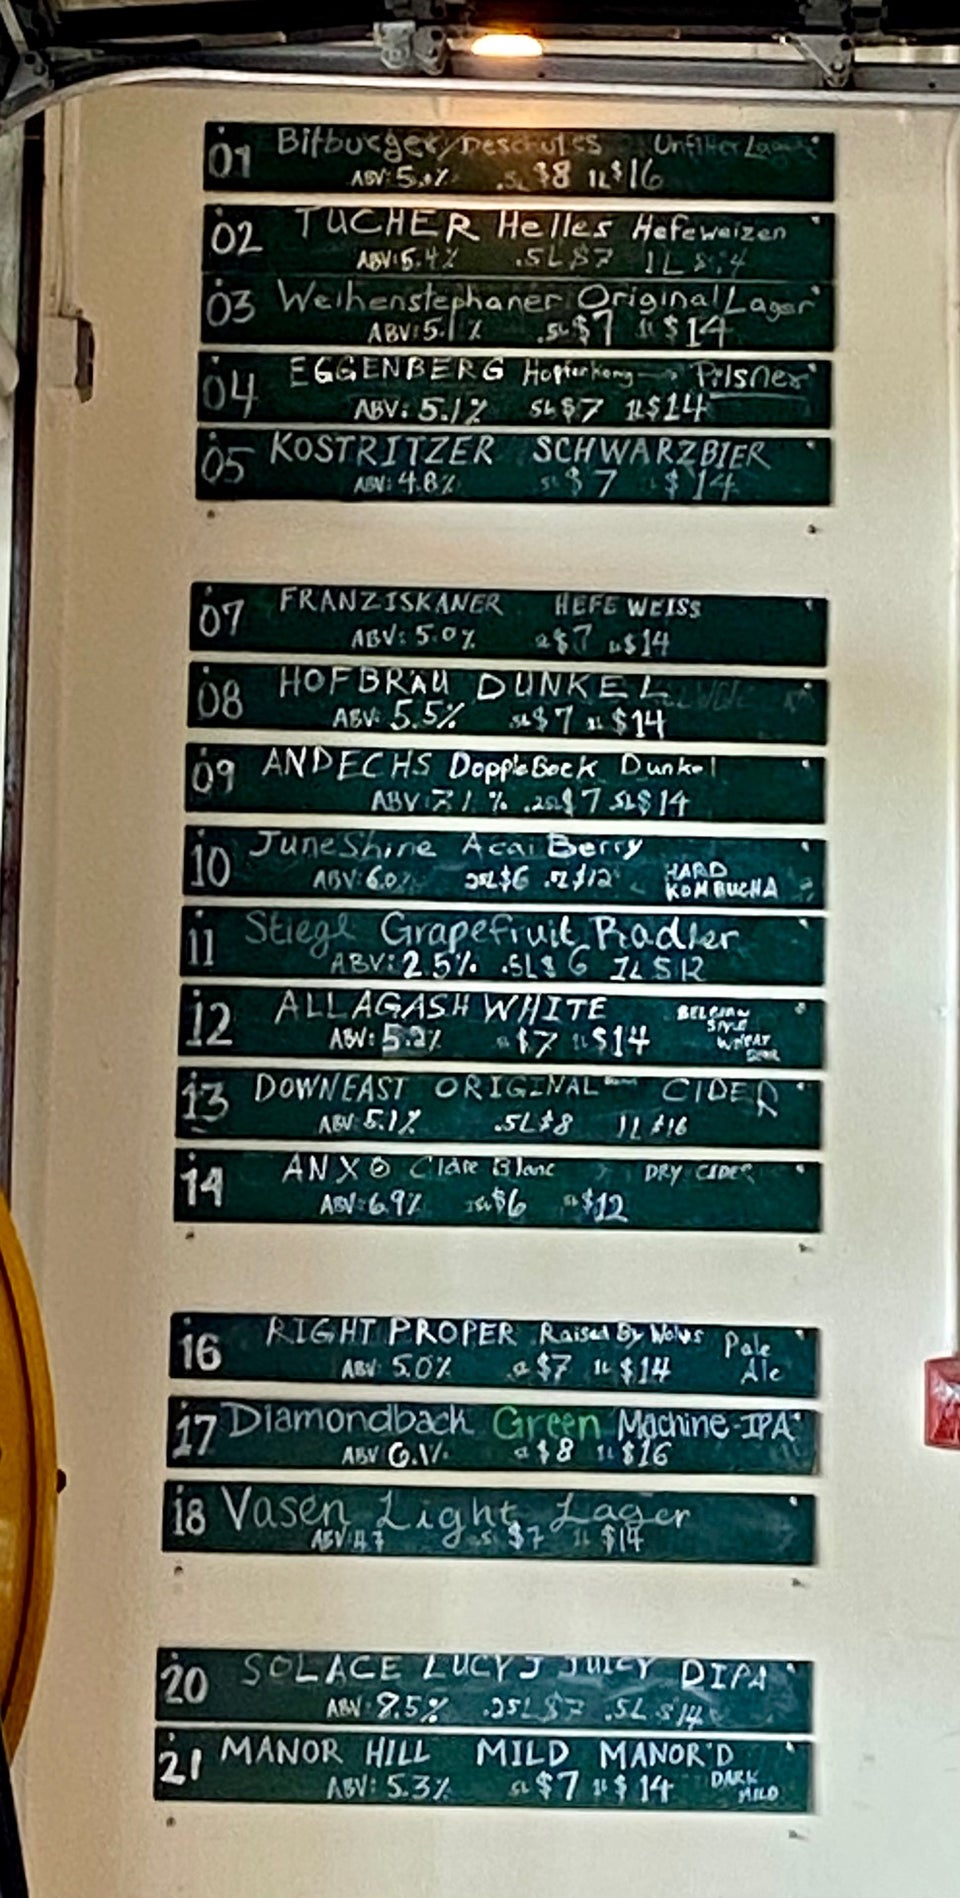 01 Bitburger/Deschutes Unfilter Lager
ABV: 5.0% .5L $8 1L $16
02 TUCHER Helles Hefeweizen
ABV: 5.4% .5L $7 1L $14
03 Weihenstephaner Original Lager
ABV: 5.1% .5L $7 1L $14
04 EGGENBERG Pilsner
ABV: 5.1% 5L $7 1L $14
05 KOSTRITZER SCHWARZBIER
ABV: 4.8% $7 $14
07 FRANZISKANER HEFE WEISS
ABV: 5.0% $7 $14
08 HOFBRAU DUNKEL
ABV: 5.5% .5L $7 1L $14
09 ANDECHS DoppleBock Dunkel
ABV: 7.1% .25L $7 .5L $14
10 JuneShine Acai Berry
ABV: 6.0% .25L $6 .5L $12 HARD
KOMBUCHA
11 Stiegl Grapefruit Radler
ABV: 2.5% .5L $6 1L $12
12 ALLAGASH WHITE BELGIAN
STYLE
ABV: 5.2% $7 1L $14 WHEAT
BEER
13 DOWNEAST ORIGINAL CIDER
ABV: 5.1% .5L $8 1L $16
14 ANXO Cidre Blanc DRY CIDER
ABV: 6.9% $6 $12
16 RIGHT PROPER Raised By Wolves Pale
ABV: 5.0% $7 1L $14 Ale
17 Diamondback Green Machine-IPA
ABV 6.1% $8 1L $16
18 Vasen Light Lager
ABV: 4.7 $7 1L $14
20 SOLACE LUCY J JUICY DIPA
ABV: 8.5% .25L $7 .5L $14
21 MANOR HILL MILD MANOR'D
ABV: 5.3% $7 1L $14 DARK
MILD